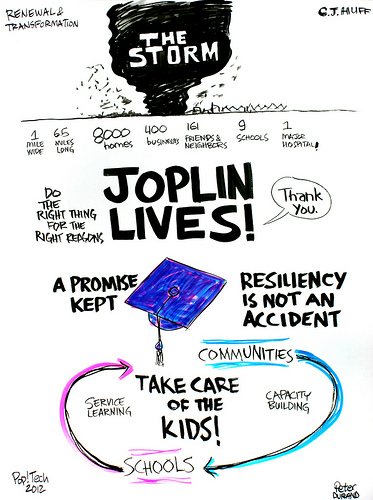 RENEWAL &
TRANSFORMATION
C.J. HUFF
THE
STORM
1
MILE
WIDE
65
MILES
LONG
8000
homes
400
businesses
161
FRIENDS &
NEIGHBORS
9
SCHOOLS
1
MAJOR
HOSPITAL!
DO
THE
RIGHT THING
FOR THE
RIGHT REASONS
JOPLIN
LIVES!
Thank
You.
A PROMISE
KEPT
RESILIENCY
IS NOT AN
ACCIDENT
COMMUNITIES
SERVICE
LEARNING
TAKE CARE
OF THE
KIDS!
CAPACITY
BUILDING
SCHOOLS
Pop!Tech
2012
Peter
DURAND